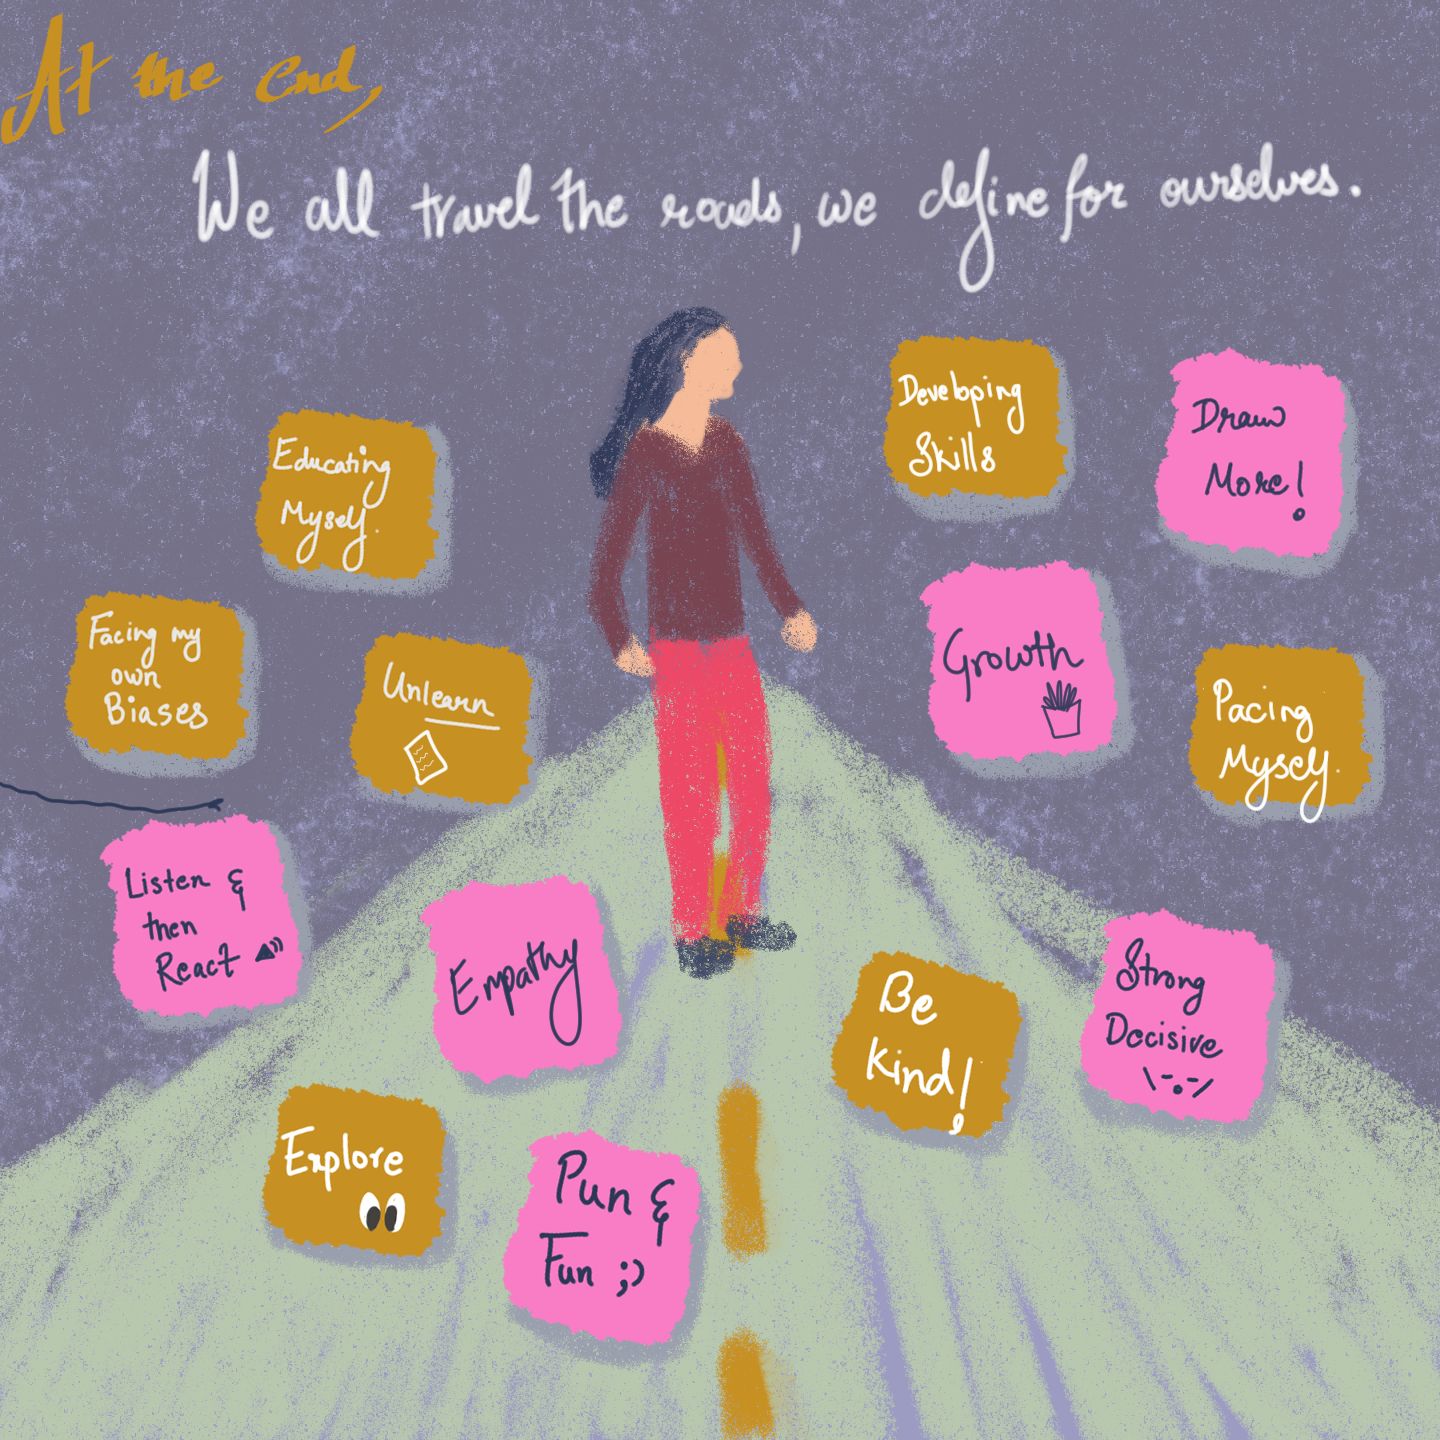 At the end,
We all travel the roads, we define for ourselves.
Educating
Myself.
Developing
Skills
Draw
More!
Facing my
own
Biases
Unlearn
Growth
Pacing
Myself.
Listen &
then
React
Empathy
Be
Kind!
Strong
Decisive
Explore
Pun &
Fun ;)